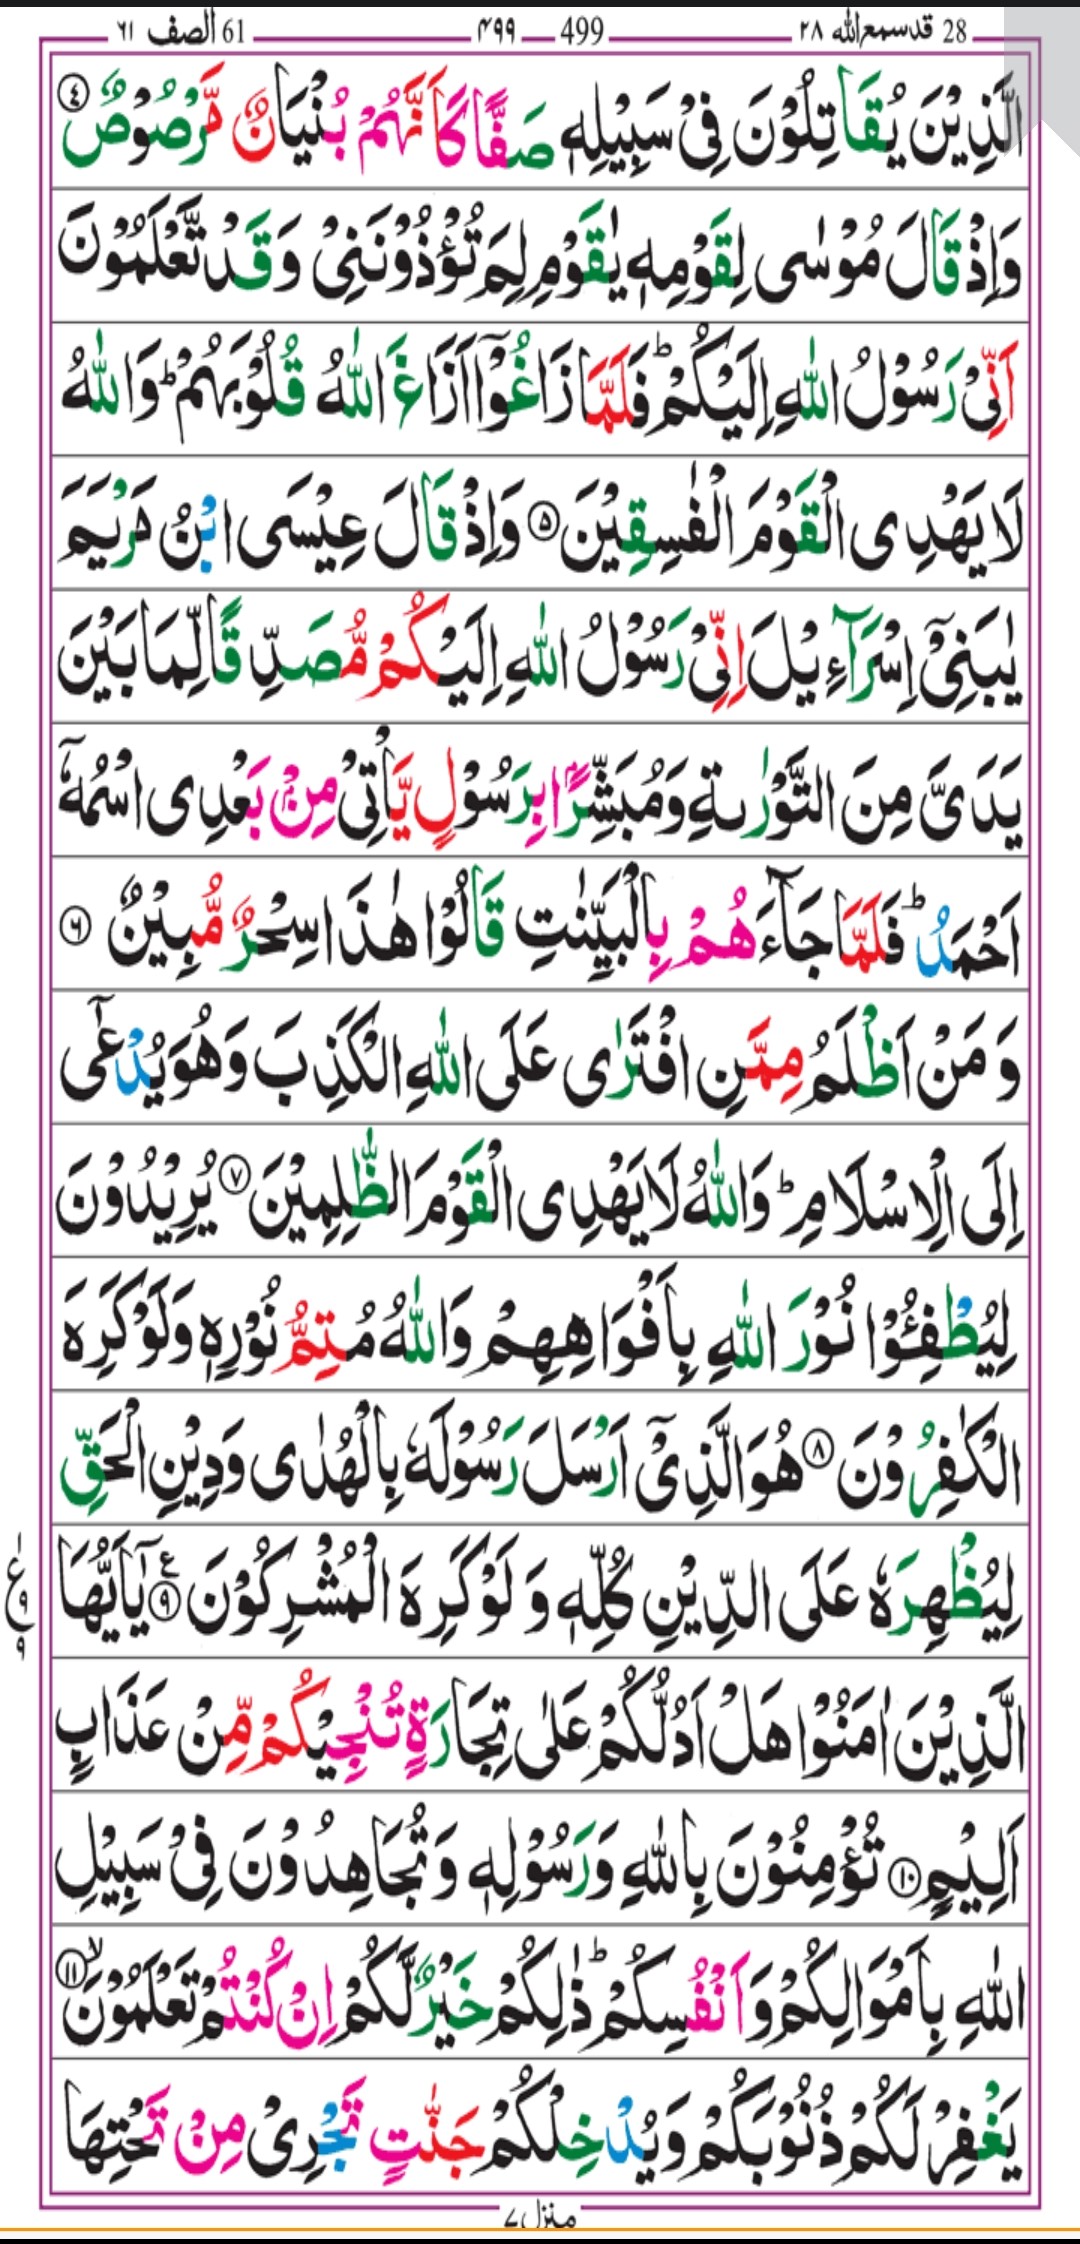 28 قدسمع الله ٢٨ — 499 — ۴۹۹ — 61 الصف ٦١
الَّذِيْنَ يُقَاتِلُوْنَ فِىْ سَبِيْلِهٖ صَفًّا كَاَنَّهُمْ بُنْيَانٌ مَّرْصُوْصٌ ﴿۴﴾
وَاِذْ قَالَ مُوْسٰى لِقَوْمِهٖ يٰقَوْمِ لِمَ تُؤْذُوْنَنِىْ وَقَدْ تَّعْلَمُوْنَ
اَنِّىْ رَسُوْلُ اللّٰهِ اِلَيْكُمْ ؕ فَلَمَّا زَاغُوْۤا اَزَاغَ اللّٰهُ قُلُوْبَهُمْ ؕ وَاللّٰهُ
لَا يَهْدِى الْقَوْمَ الْفٰسِقِيْنَ ﴿۵﴾ وَاِذْ قَالَ عِيْسَى ابْنُ مَرْيَمَ
يٰبَنِىْۤ اِسْرَآءِيْلَ اِنِّىْ رَسُوْلُ اللّٰهِ اِلَيْكُمْ مُّصَدِّقًا لِّمَا بَيْنَ
يَدَىَّ مِنَ التَّوْرٰىةِ وَمُبَشِّرًۢا بِرَسُوْلٍ يَّاْتِىْ مِنْۢ بَعْدِى اسْمُهٗۤ
اَحْمَدُ ؕ فَلَمَّا جَآءَهُمْ بِالْبَيِّنٰتِ قَالُوْا هٰذَا سِحْرٌ مُّبِيْنٌ ﴿۶﴾
وَ مَنْ اَظْلَمُ مِمَّنِ افْتَرٰى عَلَى اللّٰهِ الْكَذِبَ وَهُوَ يُدْعٰٓى
اِلَى الْاِسْلَامِ ؕ وَاللّٰهُ لَا يَهْدِى الْقَوْمَ الظّٰلِمِيْنَ ﴿۷﴾ يُرِيْدُوْنَ
لِيُطْفِـُٔوْا نُوْرَ اللّٰهِ بِاَفْوَاهِهِمْ وَاللّٰهُ مُتِمُّ نُوْرِهٖ وَلَوْ كَرِهَ
الْكٰفِرُوْنَ ﴿۸﴾ هُوَ الَّذِىْۤ اَرْسَلَ رَسُوْلَهٗ بِالْهُدٰى وَدِيْنِ الْحَقِّ
لِيُظْهِرَهٗ عَلَى الدِّيْنِ كُلِّهٖ وَ لَوْ كَرِهَ الْمُشْرِكُوْنَ ﴿۹﴾ ع يٰۤاَيُّهَا
الَّذِيْنَ اٰمَنُوْا هَلْ اَدُلُّكُمْ عَلٰى تِجَارَةٍ تُنْجِيْكُمْ مِّنْ عَذَابٍ
اَلِيْمٍ ﴿۱۰﴾ تُؤْمِنُوْنَ بِاللّٰهِ وَرَسُوْلِهٖ وَتُجَاهِدُوْنَ فِىْ سَبِيْلِ
اللّٰهِ بِاَمْوَالِكُمْ وَاَنْفُسِكُمْ ؕ ذٰلِكُمْ خَيْرٌ لَّكُمْ اِنْ كُنْتُمْ تَعْلَمُوْنَ ۙ ﴿۱۱﴾
يَغْفِرْ لَكُمْ ذُنُوْبَكُمْ وَيُدْخِلْكُمْ جَنّٰتٍ تَجْرِىْ مِنْ تَحْتِهَا
منزل ۷